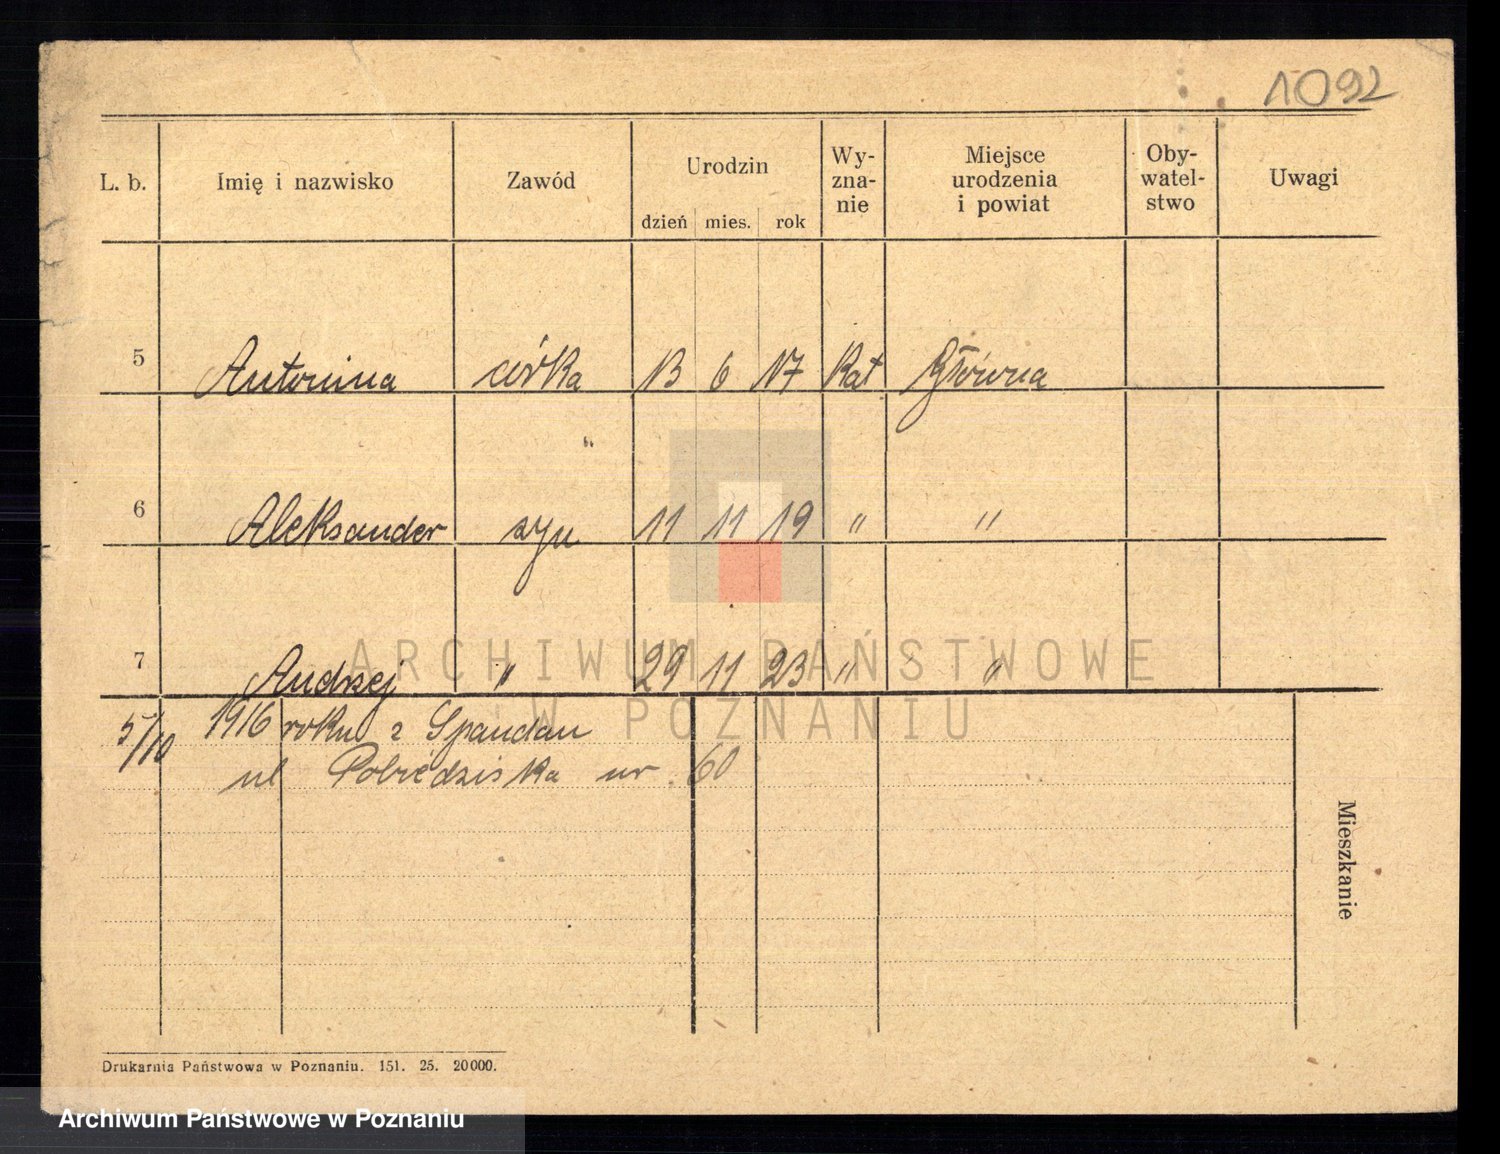 1092
L. b. Imię i nazwisko Zawód Urodzin dzień mies. rok Wyznanie Miejsce urodzenia i powiat Obywatelstwo Uwagi
5 Antonina córka 13 6 17 Kat Główna
"
6 Aleksander syn 11 11 19 " "
7 Andrzej " 29 11 23 " "
5/10 1916 roku z Spandau
ul Pobiedziska nr 60
Mieszkanie
Drukarnia Państwowa w Poznaniu. 151. 25. 20000.
ARCHIWUM PAŃSTWOWE
W POZNANIU
Archiwum Państwowe w Poznaniu